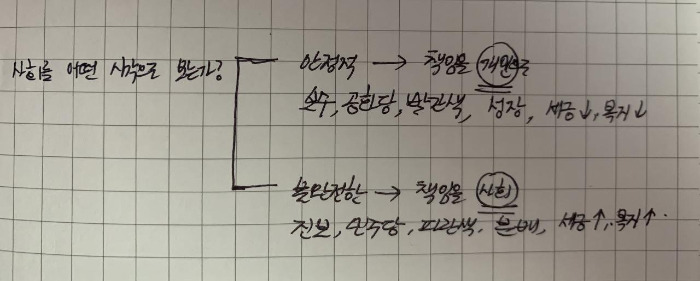 사회를 어떤 시각으로 보는가?
안정적 → 책임을 개인으로
보수, 공화당, 빨간색, 성장, 세금↓, 복지↓
불완전한 → 책임을 사회
진보, 민주당, 파란색, 분배, 세금↑, 복지↑.